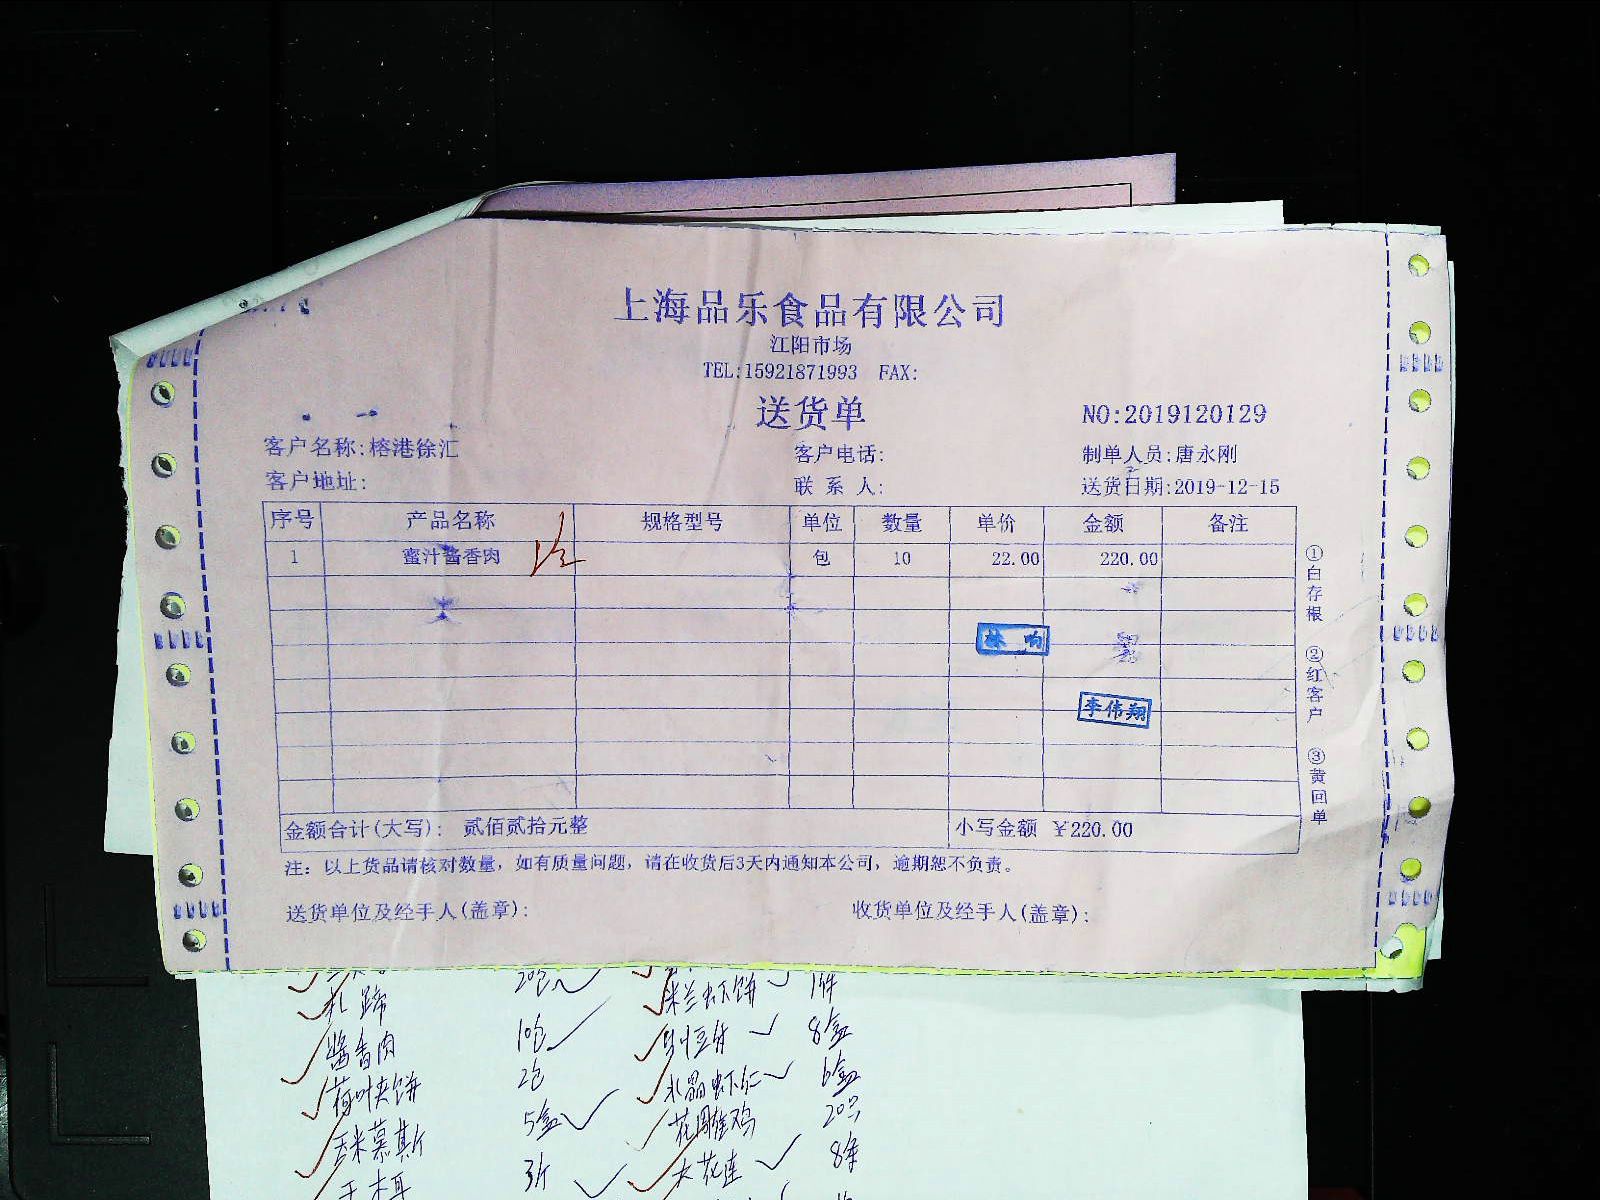 上海品乐食品有限公司
江阳市场
TEL:15921871993 FAX:
送货单
NO:2019120129
客户名称:榕港徐汇 客户电话: 制单人员:唐永刚
客户地址: 联系人: 送货日期:2019-12-15
序号 产品名称 规格型号 单位 数量 单价 金额 备注
1 蜜汁酱香肉 包 10 22.00 220.00
林响
李伟翔
金额合计(大写): 贰佰贰拾元整 小写金额 ¥220.00
注: 以上货品请核对数量, 如有质量问题, 请在收货后3天内通知本公司, 逾期恕不负责。
送货单位及经手人(盖章): 收货单位及经手人(盖章):
①白存根 ②红客户 ③黄回单
扎蹄 20包 米兰虾饼 1件
酱香肉 10包 8盒
荷叶夹饼 2包 水晶虾仁 6盒
玉米慕斯 5盒 花雕鸡 20只
木耳 3斤 大花连 8条